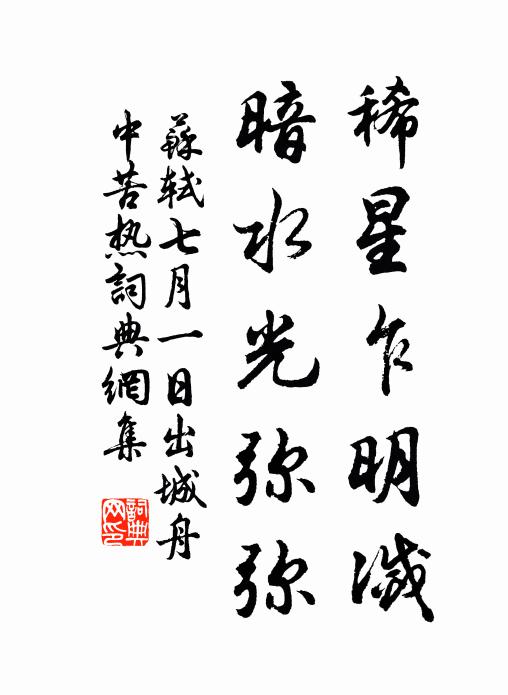 稀星乍明滅
暗水光弥弥
蘇軾七月一日出城舟
中苦热詞典網集
詞典
网印